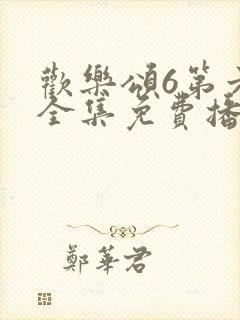 歡樂頌6第
全集免費播
鄭華君